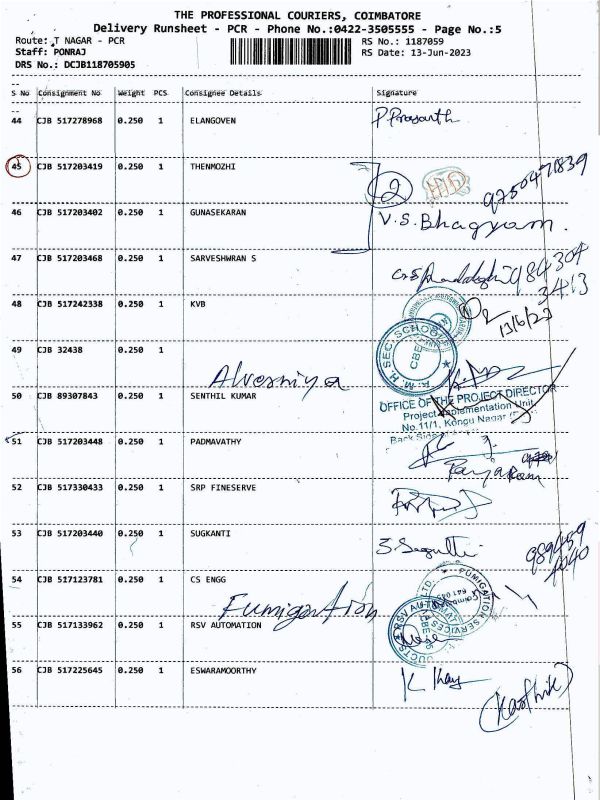 THE PROFESSIONAL COURIERS, COIMBATORE
Delivery Runsheet - PCR - Phone No.:0422-3505555 - Page No.:5
Route: T NAGAR - PCR RS No.: 1187059
Staff: PONRAJ RS Date: 13-Jun-2023
DRS No.: DCJB118705905
S No Consignment No Weight PCS Consignee Details Signature
44 CJB 517278968 0.250 1 ELANGOVEN P Prasanth
45 CJB 517203419 0.250 1 THENMOZHI
2 9750471839
46 CJB 517203402 0.250 1 GUNASEKARAN V.S. Bhagyam.
47 CJB 517203468 0.250 1 SARVESHWRAN S
984304
3413
48 CJB 517242338 0.250 1 KVB
13/6/23
49 CJB 32438 0.250 1
R. M. H. SEC. SCHOOL
CBE
50 CJB 89307843 0.250 1 SENTHIL KUMAR
OFFICE OF THE PROJECT DIRECTOR
Project Implementation Unit
No.11/1, Kongu Nagar
51 CJB 517203448 0.250 1 PADMAVATHY
52 CJB 517330433 0.250 1 SRP FINESERVE
53 CJB 517203440 0.250 1 SUGKANTI
989459
4040
54 CJB 517123781 0.250 1 CS ENGG
Fumigation
FUMIGATION SERVICES
LTD.
Coimbatore
641 045
55 CJB 517133962 0.250 1 RSV AUTOMATION
RSV AUTO
56 CJB 517225645 0.250 1 ESWARAMOORTHY K Kay
(Karthik)